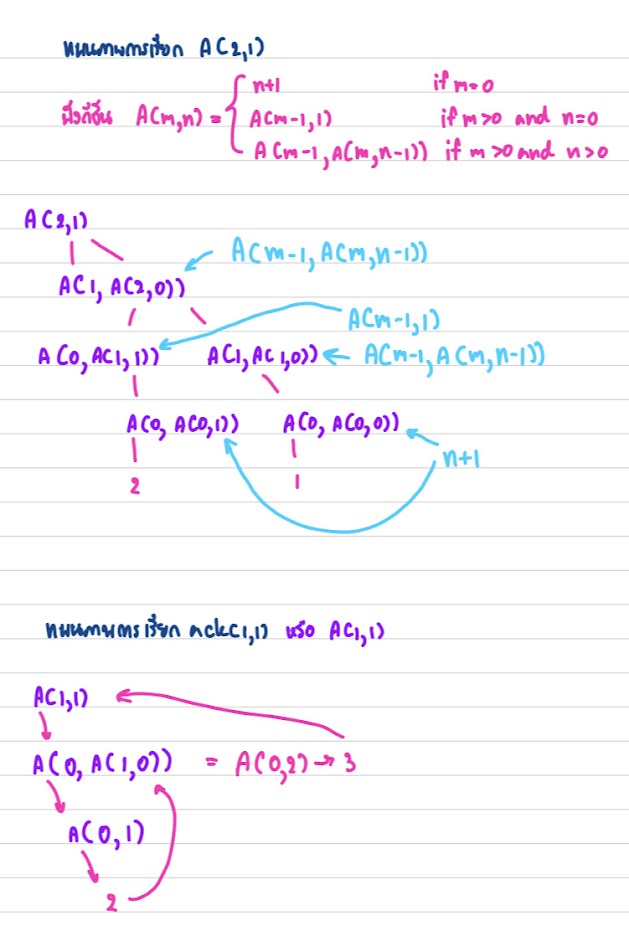 แผนภาพการเรียก A(2,1)
ฟังก์ชัน A(m,n) = { n+1 if m=0
A(m-1,1) if m>0 and n=0
A(m-1,A(m,n-1)) if m>0 and n>0
A(2,1)
A(m-1,A(m,n-1))
A(1, A(2,0))
A(m-1,1)
A(0,A(1,1)) A(1,A(1,0)) A(m-1,A(m,n-1))
A(0, A(0,1)) A(0, A(0,0))
n+1
2 1
แผนภาพการเรียก ack(1,1) หรือ A(1,1)
A(1,1)
A(0, A(1,0)) = A(0,2) → 3
A(0,1)
2